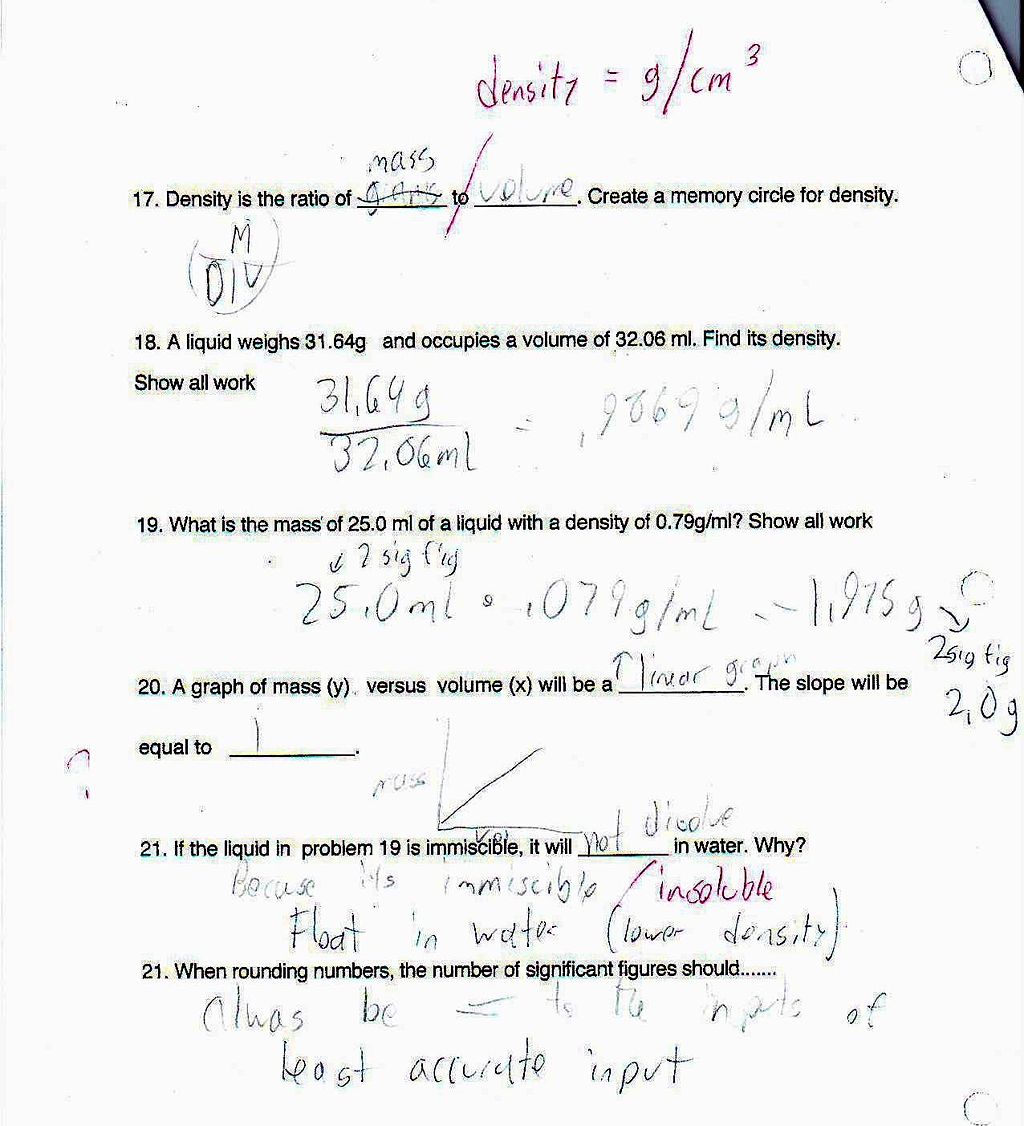 density = g/cm³
mass
17. Density is the ratio of grams to / volume. Create a memory circle for density.
M
D | V
18. A liquid weighs 31.64g and occupies a volume of 32.06 ml. Find its density.
Show all work
31.64 g
32.06 ml = .9869 g/mL
19. What is the mass of 25.0 ml of a liquid with a density of 0.79g/ml? Show all work
↓ 2 sig fig
25.0 ml • .079 g/mL ~ 1.975 g
2 sig fig
2.0 g
20. A graph of mass (y). versus volume (x) will be a linear graph. The slope will be
equal to 1.
?
mass
Vol
21. If the liquid in problem 19 is immiscible, it will not disolve in water. Why?
Becuse it's immiscible / insoluble
Float in water (lower density)
21. When rounding numbers, the number of significant figures should.......
Alwas be = to the inputs of
least accurate input